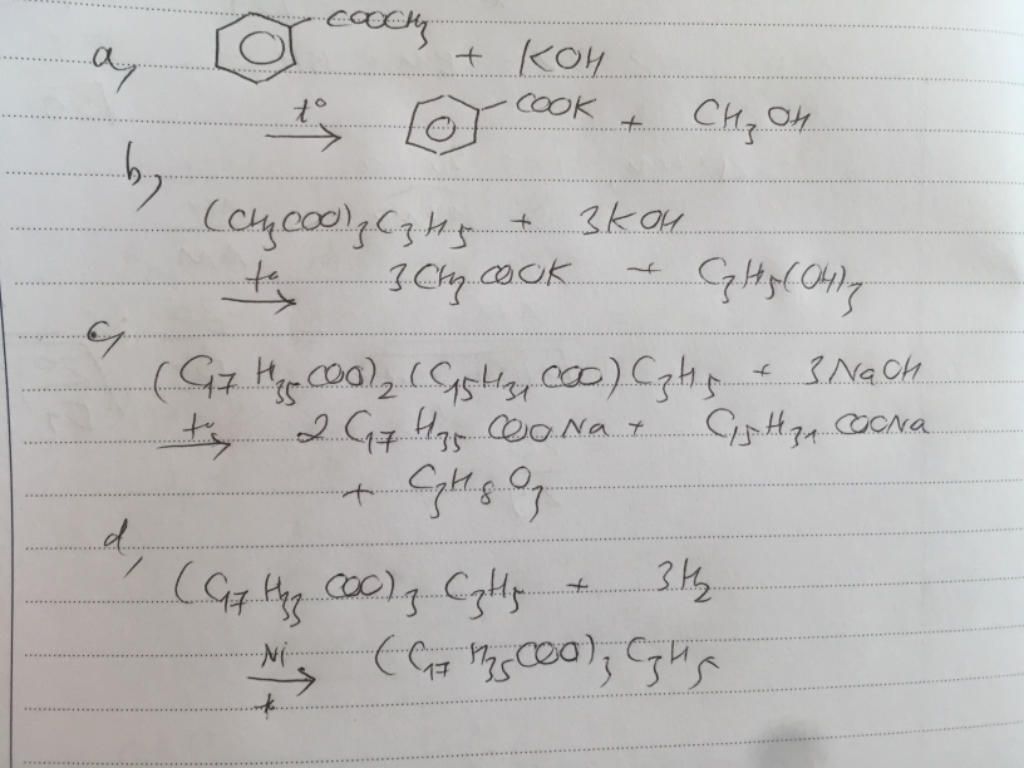 a, COOCH3 + KOH
t° → COOK + CH3OH
b,
(CH3COO)3C3H5 + 3KOH
t° → 3CH3COOK + C3H5(OH)3
c,
(C17H35COO)2(C15H31COO)C3H5 + 3NaOH
t° → 2C17H35COONa + C15H31COONa
+ C3H8O3
d,
(C17H33COO)3C3H5 + 3H2
Ni → (C17H35COO)3C3H5
t